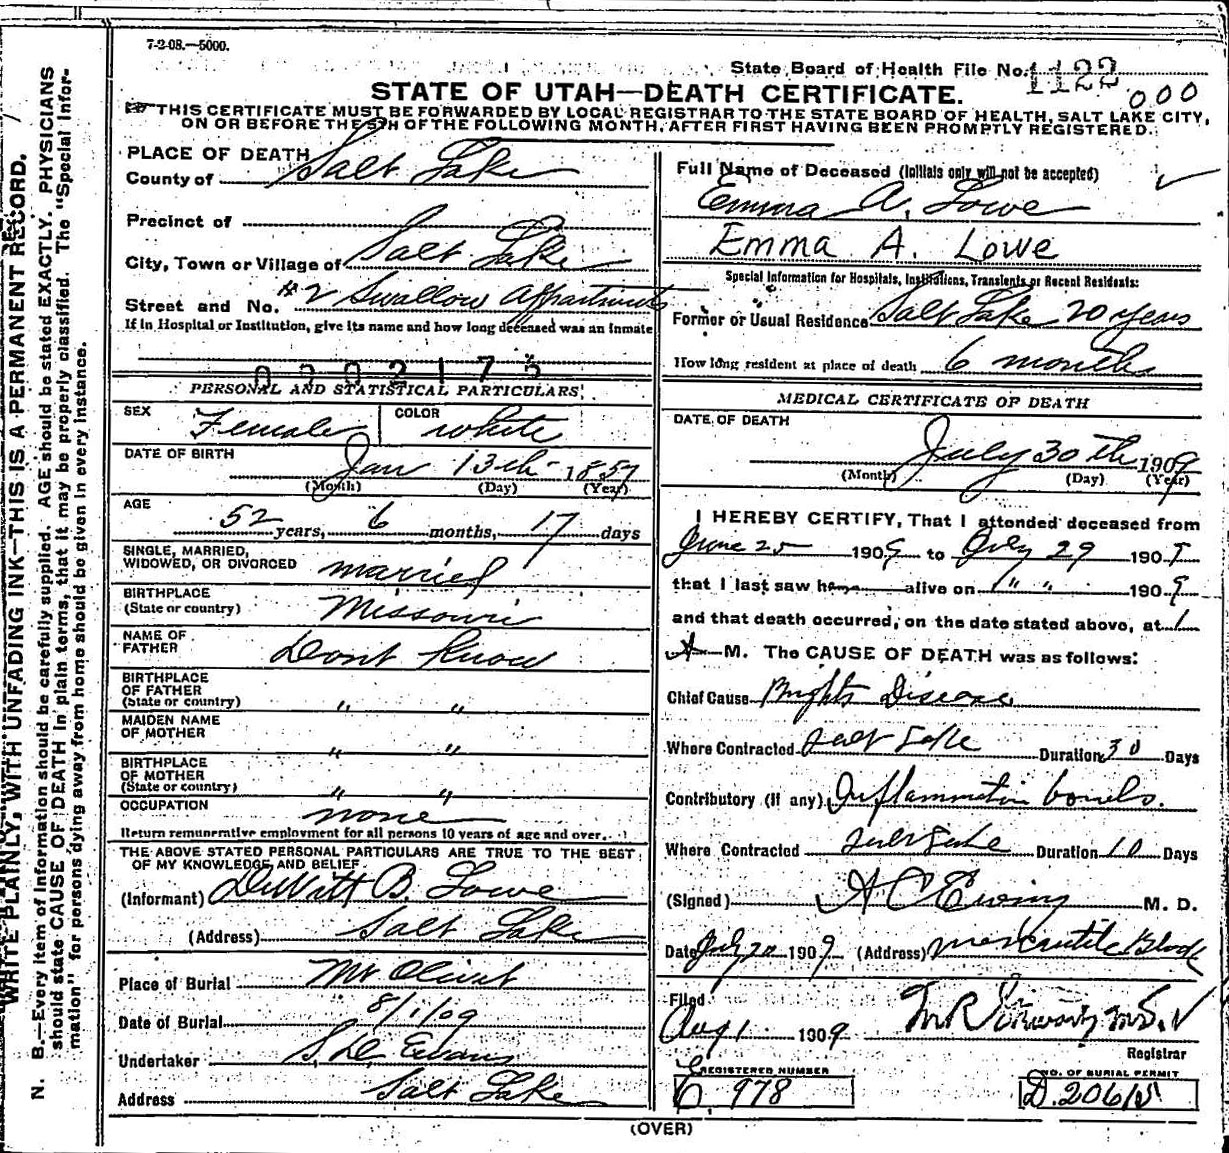 7-2-08.—5000.
State Board of Health File No. 1122
000
STATE OF UTAH—DEATH CERTIFICATE.
THIS CERTIFICATE MUST BE FORWARDED BY LOCAL REGISTRAR TO THE STATE BOARD OF HEALTH, SALT LAKE CITY,
ON OR BEFORE THE 5TH OF THE FOLLOWING MONTH, AFTER FIRST HAVING BEEN PROMPTLY REGISTERED.
WRITE PLAINLY, WITH UNFADING INK—THIS IS A PERMANENT RECORD.
N. B.—Every item of information should be carefully supplied. AGE should be stated EXACTLY. PHYSICIANS
should state CAUSE OF DEATH in plain terms, that it may be properly classified. The "Special Infor-
mation" for persons dying away from home should be given in every instance.
PLACE OF DEATH
County of Salt Lake
Precinct of
City, Town or Village of Salt Lake
Street and No. #2 Swallow Appartments
If in Hospital or Institution, give its name and how long deceased was an inmate
0002175
PERSONAL AND STATISTICAL PARTICULARS
SEX Female COLOR white
DATE OF BIRTH Jan 13th 1857
(Month) (Day) (Year)
AGE
52 years, 6 months, 17 days
SINGLE, MARRIED,
WIDOWED, OR DIVORCED married
BIRTHPLACE
(State or country) Missouri
NAME OF
FATHER Dont Know
BIRTHPLACE
OF FATHER
(State or country) " "
MAIDEN NAME
OF MOTHER " "
BIRTHPLACE
OF MOTHER
(State or country) " "
OCCUPATION none
Return remunerative employment for all persons 10 years of age and over.
THE ABOVE STATED PERSONAL PARTICULARS ARE TRUE TO THE BEST
OF MY KNOWLEDGE AND BELIEF.
(Informant) DeWitt B. Lowe
(Address) Salt Lake
Place of Burial Mt Olivet
Date of Burial 8/1/09
Undertaker S. D. Evans
Address Salt Lake
Full Name of Deceased (Initials only will not be accepted)
Emma A. Lowe
Emma A. Lowe
Special Information for Hospitals, Institutions, Transients or Recent Residents:
Former or Usual Residence Salt Lake 20 years
How long resident at place of death 6 months
MEDICAL CERTIFICATE OF DEATH
DATE OF DEATH
July 30th 1909
(Month) (Day) (Year)
I HEREBY CERTIFY, That I attended deceased from
June 25 1909 to July 29 1909
that I last saw h alive on " " 1909
and that death occurred, on the date stated above, at 1
A M. The CAUSE OF DEATH was as follows:
Chief Cause Brights Disease
Where Contracted Salt Lake Duration 30 Days
Contributory (if any) Inflammation bowels.
Where Contracted Salt Lake Duration 10 Days
(Signed) A C Ewing M. D.
Date July 20 1909 (Address) Mercantile Block
Filed
Aug 1 1909 M. D.
Registrar
REGISTERED NUMBER
C. 978
NO. OF BURIAL PERMIT
D. 20615
(OVER)